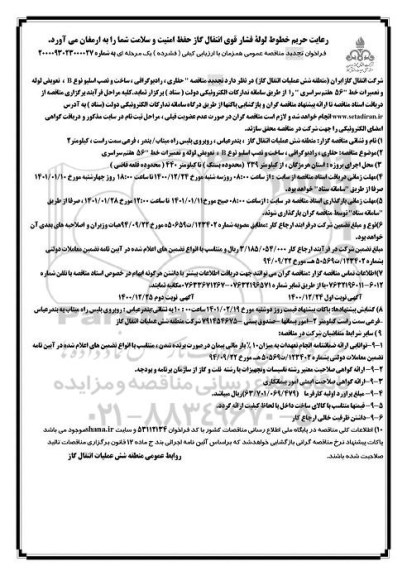 رعایت حریم خطوط لولهٔ فشار قوی انتقال گاز حفظ امنیت و سلامت شما را به ارمغان می آورد.
فراخوان تجدید مناقصه عمومی همزمان با ارزیابی کیفی ( فشرده ) یک مرحله ای به شماره ۲۰۰۰۰۹۳۰۲۳۰۰۰۰۲۷
شرکت انتقال گاز ایران (منطقه شش عملیات انتقال گاز) در نظر دارد تجدید مناقصه " حفاری ، رادیوگرافی ، ساخت و نصب اسلیو نوع B ، تعویض لوله
و تعمیرات خط "۵۶ هفتم سراسری " را از طریق سامانه تدارکات الکترونیکی دولت ( ستاد ) برگزار نماید. کلیه مراحل فرآیند برگزاری مناقصه از
دریافت اسناد مناقصه تا ارائه پیشنهاد مناقصه گران و بازگشایی پاکتها از طریق درگاه سامانه تدارکات الکترونیکی دولت (ستاد ) به آدرس
www.setadiran.ir انجام خواهد شد و لازم است مناقصه گران در صورت عدم عضویت قبلی ، مراحل ثبت نام در سایت مذکور و دریافت گواهی
امضای الکترونیکی را جهت شرکت در مناقصه محقق سازند.
۱) نام و نشانی مناقصه گزار: منطقه شش عملیات انتقال گاز ، بندرعباس ، روبروی پلیس راه میناب/بندر ، فرعی سمت راست ، کیلومتر۲
۲)موضوع مناقصه: حفاری ، رادیوگرافی ، ساخت و نصب اسلیو نوع B ، تعویض لوله و تعمیرات خط "۵۶ هفتم سراسری
۳) محل اجرای پروژه : استان هرمزگان ، از کیلومتر ۲۳۹ (محدوده پستک ) تا کیلومتر ۲۴۰ ( محدوده قلعه قاضی ) .
۴)مهلت زمانی دریافت اسناد مناقصه از سایت : از ساعت ۰۸:۰۰ روز سه شنبه مورخ ۱۴۰۰/۱۲/۲۴ تا ساعت ۱۸:۰۰ روز چهارشنبه مورخ ۱۴۰۱/۰۱/۱۰
صرفاً از طریق "سامانه ستاد" خواهد بود.
۵)مهلت زمانی بارگذاری اسناد مناقصه در سایت : از ساعت ۰۸:۰۰ صبح مورخ ۱۴۰۱/۰۱/۱۱ تا ساعت ۱۲:۰۰ مورخ ۱۴۰۱/۰۱/۲۸ صرفاً از طریق
"سامانه ستاد" توسط مناقصه گران بارگذاری شوند.
۶)نوع و مبلغ تضمین شرکت در فرایند ارجاع کار :مطابق مصوبه شماره ۱۲۳۴۰۲/ت۵۰۶۵۹ه مورخ ۹۴/۰۹/۲۲ هیات وزیران و اصلاحیه های بعدی آن
خواهد بود.
مبلغ تضمین شرکت در فرآیند ارجاع کار ۳/۱۸۵/۰۵۴/۰۰۰ ریال و متناسب با انواع تضمین های اعلام شده در آیین نامه تضمین معاملات دولتی
بشماره ۱۲۳۴۰۲/ت۵۰۶۵۹ هـ مورخ ۹۴/۰۹/۲۲
۷)اطلاعات تماس مناقصه گزار :مناقصه گران می توانند جهت دریافت اطلاعات بیشتر یا داشتن هرگونه ابهام در خصوص اسناد مناقصه با تلفن شماره
آگهی نوبت اول ۱۴۰۰/۱۲/۲۴
آگهی نوبت دوم ۱۴۰۰/۱۲/۲۵
۸) گشایش پیشنهادها: پاکات پیشنهاد قیمت روز دوشنبه مورخ ۱۴۰۱/۰۲/۱۹ ساعت ۱۰:۰۰ به نشانی بندرعباس : روبروی پلیس راه میناب به بندرعباس
-فرعی سمت راست کیلومتر ۲- امور پیمانها -صندوق پستی ۷۹۱۴۵۴۶۷۵- شرکت منطقه شش عملیات انتقال گاز
۹) سایر شرایط متقاضیان شرکت در مناقصه:
۹-۱-توانایی ارائه ضمانتنامه انجام تعهدات به میزان ۱۰٪ بار مالی پیمان در صورت برنده شدن ، متناسب با انواع تضمین های اعلام شده در آیین نامه
تضمین معاملات دولتی بشماره ۱۲۳۴۰۲/ت۵۰۶۵۹ هـ مورخ ۹۴/۰۹/۲۲
۹-۲- ارائه گواهی صلاحیت معتبر رشته تاسیسات وتجهیزات یا رشته نفت و گاز از سازمان برنامه و بودجه.
۹-۳- ارائه گواهی صلاحیت ایمنی امور پیمانکاری
۹-۴- مبلغ برآورد اولیه کارفرما (۶۳/۷۰۱/۰۶۹/۴۷۹) ریال میباشد.
۹-۵- قیمتها متناسب با کالای ساخت داخل با لحاظ کیفیت ارائه گردد.
۹-۶- داشتن ظرفیت خالی ارجاع کار
۱۰) اطلاعات کلی مناقصه در پایگاه ملی اطلاع رسانی مناقصات کشور با کد فراخوان ۵۳۱۱۲۱۳۴ و سایت shana.ir موجود می باشد
پاکات پیشنهاد نرخ مناقصه گرانی بازگشایی خواهد شد که براساس آئین نامه اجرائی بند ج ماده ۱۲ قانون برگزاری مناقصات تائید
صلاحیت شده باشند.
روابط عمومی منطقه شش عملیات انتقال گاز